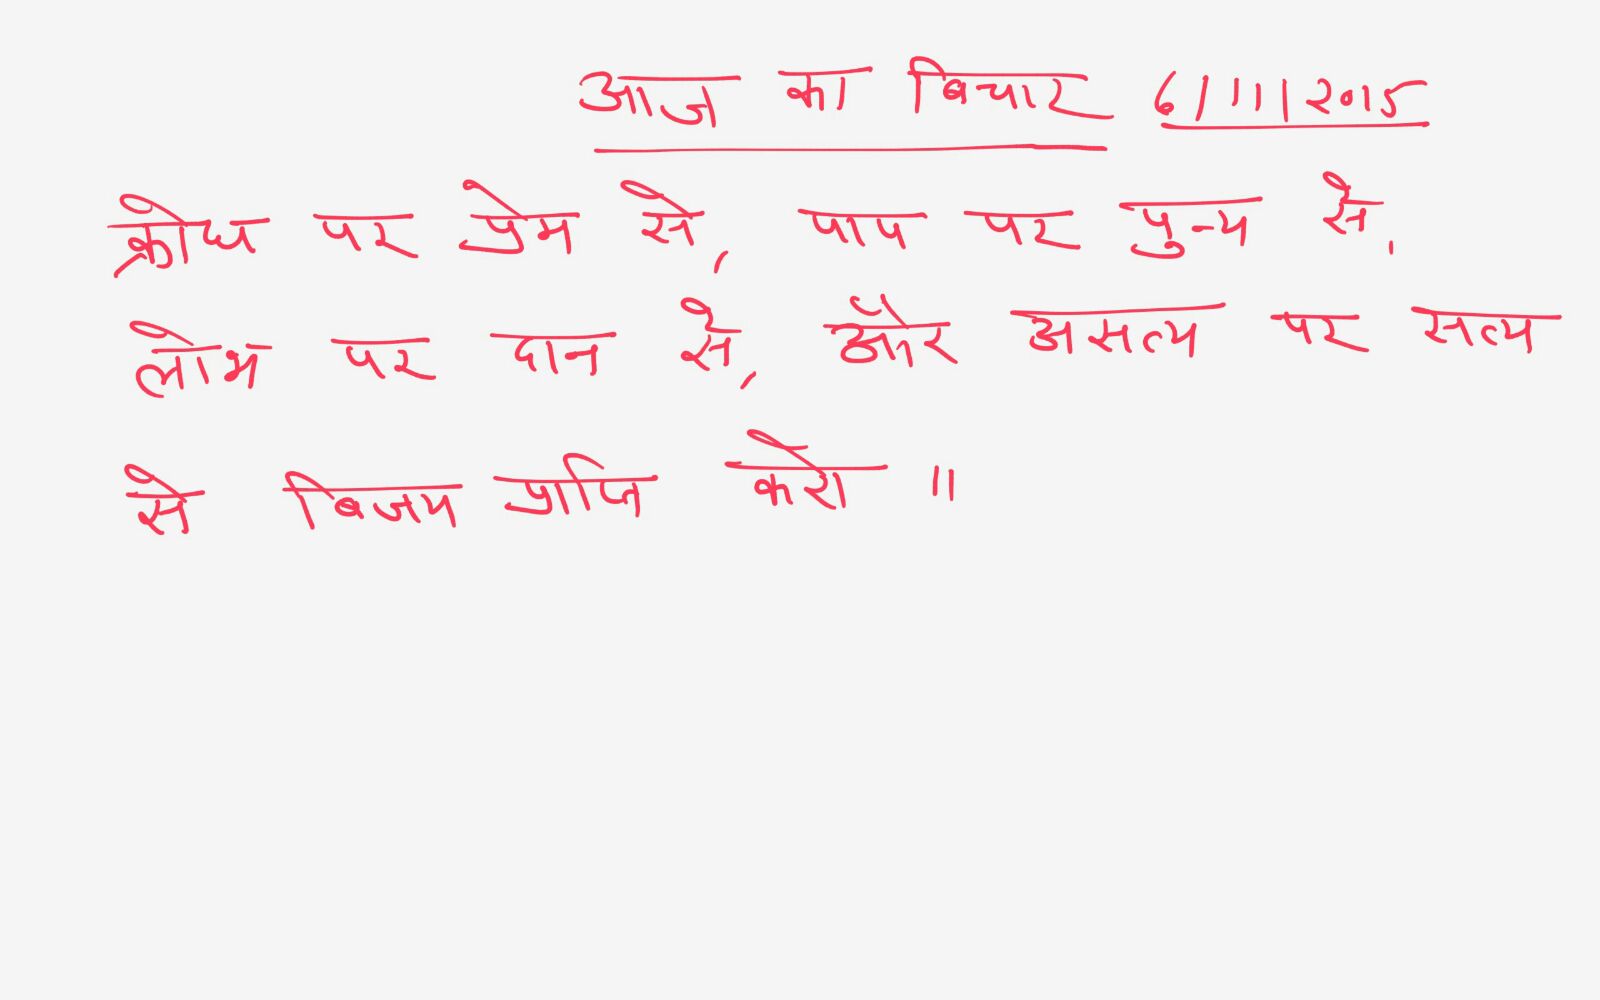 आज का बिचार 6/11/2015
क्रोध पर प्रेम से, पाप पर पुन्य से,
लोभ पर दान से, और असत्य पर सत्य
से बिजय प्राप्ति करो ॥